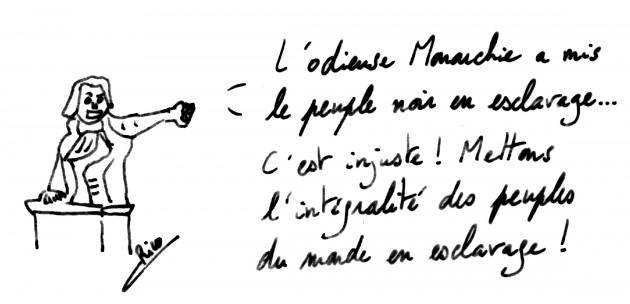 L'odieuse Monarchie a mis
le peuple noir en esclavage...
C'est injuste ! Mettons
l'intégralité des peuples
du monde en esclavage !
Rico